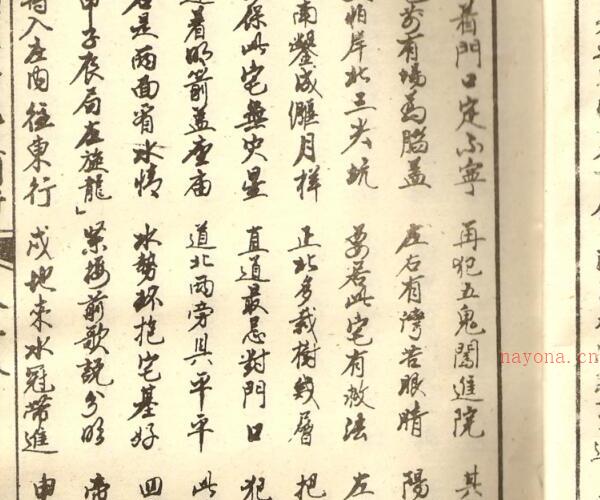 着門口定不寧 再犯五鬼闖進院 其
前有塲為腦蓋 左右有灣苦眼睛 陽
怕岸北三尖坑 要若此宅有救法 左
南鑿成偃月樣 正北多栽樹幾層 把
保此宅無火星 直道最忌對門口 犯
道着明箭盖座廟 道北兩旁具平平 此
是兩面看水情 水勢环抱宅基好 四
甲子辰局左旋龍 緊接前歌説分明 帝
入庄內往東行 戌地来水冠帶進 申
nayona.cn